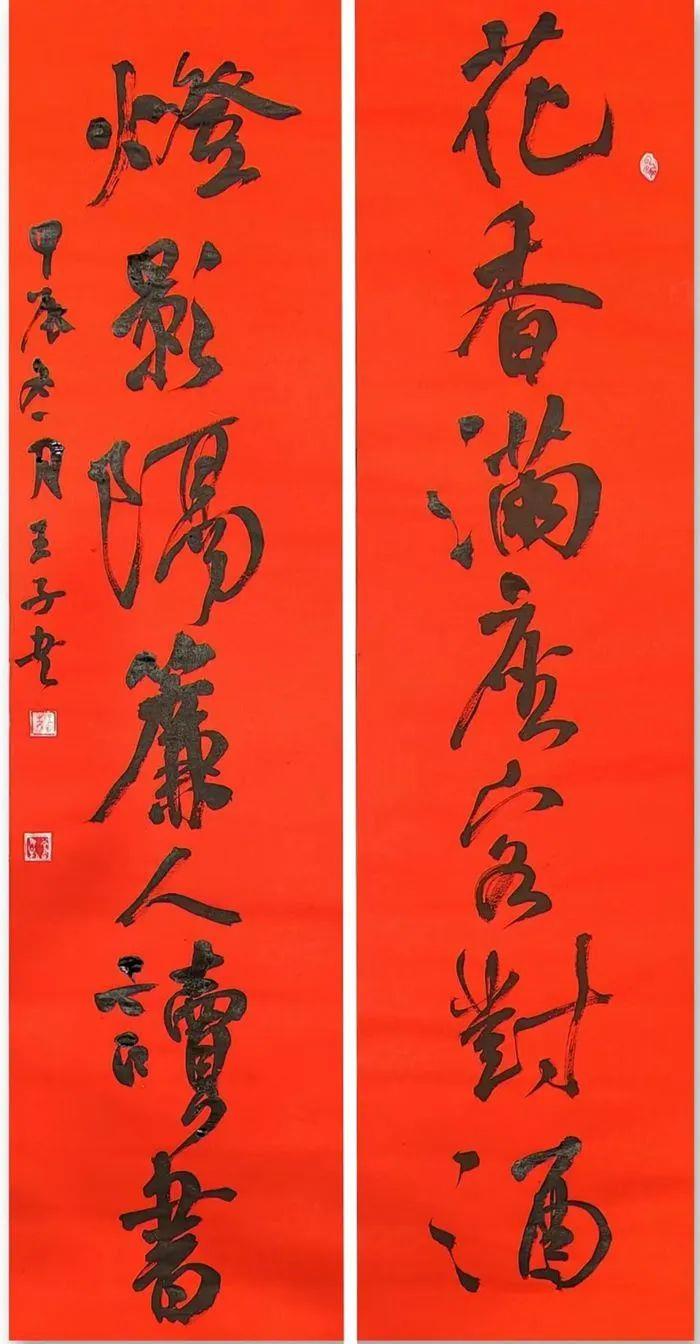 花香滿座客對酒
燈影隔簾人讀書
甲辰冬月王子書